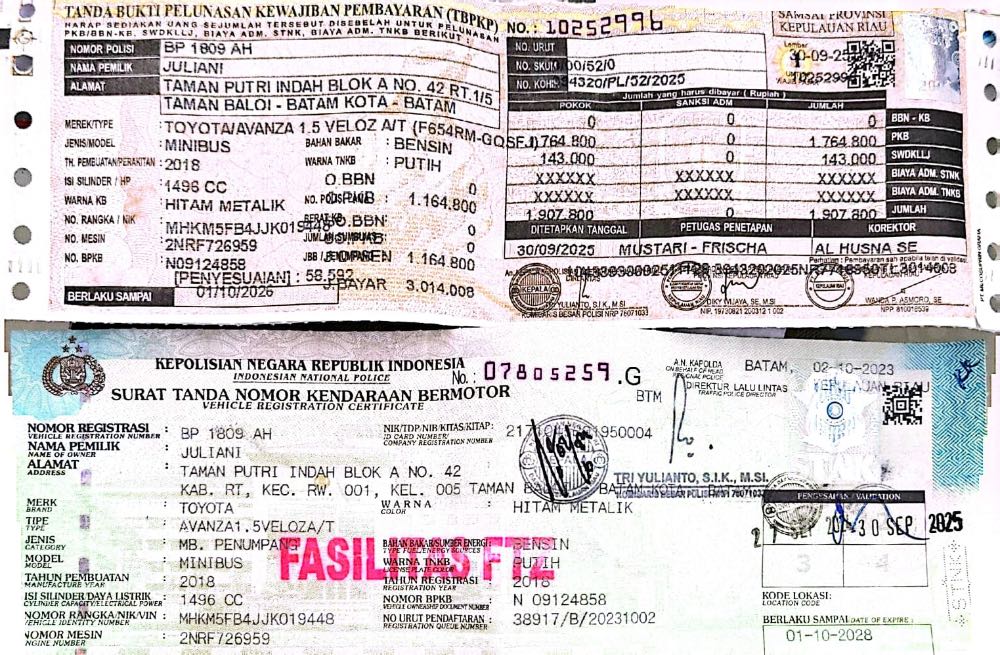 TANDA BUKTI PELUNASAN KEWAJIBAN PEMBAYARAN (TBPKP)
HARAP SEDIAKAN UANG SEJUMLAH TERSEBUT DISEBELAH UNTUK PELUNASAN
PKB/BBN-KB, SWDKLLJ, BIAYA ADM. STNK, BIAYA ADM. TNKB BERIKUT :
NO.: 10252996
SAMSAT PROVINSI
KEPULAUAN RIAU
NOMOR POLISI BP 1809 AH
NAMA PEMILIK JULIANI
ALAMAT TAMAN PUTRI INDAH BLOK A NO. 42 RT.1/5
TAMAN BALOI - BATAM KOTA - BATAM
MEREK/TYPE : TOYOTA/AVANZA 1.5 VELOZ A/T (F654RM-GQSFJ)
JENIS/MODEL : MINIBUS BAHAN BAKAR : BENSIN
TH. PEMBUATAN/PERAKITAN : 2018 WARNA TNKB : PUTIH
ISI SILINDER / HP : 1496 CC O.BBN 0
WARNA KB : HITAM METALIK 1.164.800
NO. RANGKA / NIK : MHKM5FB4JJK019448 O.BBN: 0
NO. MESIN : 2NRF726959 0
NO. BPKB : N09124858 1.164.800
[PENYESUAIAN] : 58.592
BERLAKU SAMPAI 01/10/2026 J.BAYAR 3.014.008
NO. URUT
NO. SKUM 00/52/0
NO. KOHIR 94320/PL/52/2025
Lembar
30-09-25
10252996
Jumlah yang harus dibayar ( Rupiah )
POKOK SANKSI ADM JUMLAH
0 0 0 BBN - KB
1.764.800 0 1.764.800 PKB
143.000 0 143.000 SWDKLLJ
XXXXXX XXXXXX XXXXXX BIAYA ADM. STNK
XXXXXX XXXXXX XXXXXX BIAYA ADM. TNKB
1.907.800 0 1.907.800 JUMLAH
DITETAPKAN TANGGAL PETUGAS PENETAPAN KOREKTOR
30/09/2025 MUSTARI - FRISCHA AL HUSNA SE
TRI YULIANTO, S.I.K., M.SI
KOMISARIS BESAR POLISI NRP 76071033
DIKY WIJAYA, SE, M.SI
NIP. 19730821 200312 1 002
WANDA P. ASMORO, SE
KEPOLISIAN NEGARA REPUBLIK INDONESIA
INDONESIAN NATIONAL POLICE
No.: 07805259 .G
SURAT TANDA NOMOR KENDARAAN BERMOTOR
VEHICLE REGISTRATION CERTIFICATE
BTM
A.N. KAPOLDA BATAM, 02-10-2023
ON BEHALF OF HEAD
REGIONAL POLICE
KEPULAUAN RIAU
DIREKTUR LALU LINTAS
TRAFFIC POLICE DIRECTOR
TRI YULIANTO, S.I.K., M.SI.
KOMISARIS BESAR POLISI NRP 76071033
NOMOR REGISTRASI : BP 1809 AH
VEHICLE REGISTRATION NUMBER
NIK/TDP/NIB/KITAS/KITAP :
ID CARD NUMBER/
COMPANY REGISTRATION NUMBER
NAMA PEMILIK : JULIANI
NAME OF OWNER
ALAMAT : TAMAN PUTRI INDAH BLOK A NO. 42
ADDRESS
KAB. RT, KEC. RW. 001, KEL. 005 TAMAN
MERK : TOYOTA WARNA : HITAM METALIK
BRAND COLOR
TIPE : AVANZA1.5VELOZA/T
TYPE
JENIS : MB. PENUMPANG BAHAN BAKAR/SUMBER ENERGI : BENSIN
CATEGORY TYPE FUEL/ENERGY SOURCES
MODEL : MINIBUS WARNA TNKB : PUTIH
MODEL LICENSE PLATE COLOR
FASILITAS FTZ
TAHUN PEMBUATAN : 2018 TAHUN REGISTRASI : 2018
MANUFACTURE YEAR REGISTRATION YEAR
ISI SILINDER/DAYA LISTRIK : 1496 CC NOMOR BPKB : N 09124858
CYLINDER CAPACITY/ELECTRICAL POWER VEHICLE OWNERSHIP DOCUMENT NUMBER
NOMOR RANGKA/NIK/VIN : MHKM5FB4JJK019448 NO URUT PENDAFTARAN : 38917/B/20231002
VEHICLE IDENTITY NUMBER REGISTRATION QUEUE NUMBER
NOMOR MESIN : 2NRF726959
ENGINE NUMBER
PENGESAHAN / VALIDATION
30 SEP 2025
3 4
KODE LOKASI:
LOCATION CODE
BERLAKU SAMPAI DATE OF EXPIRE :
01-10-2028
STNK